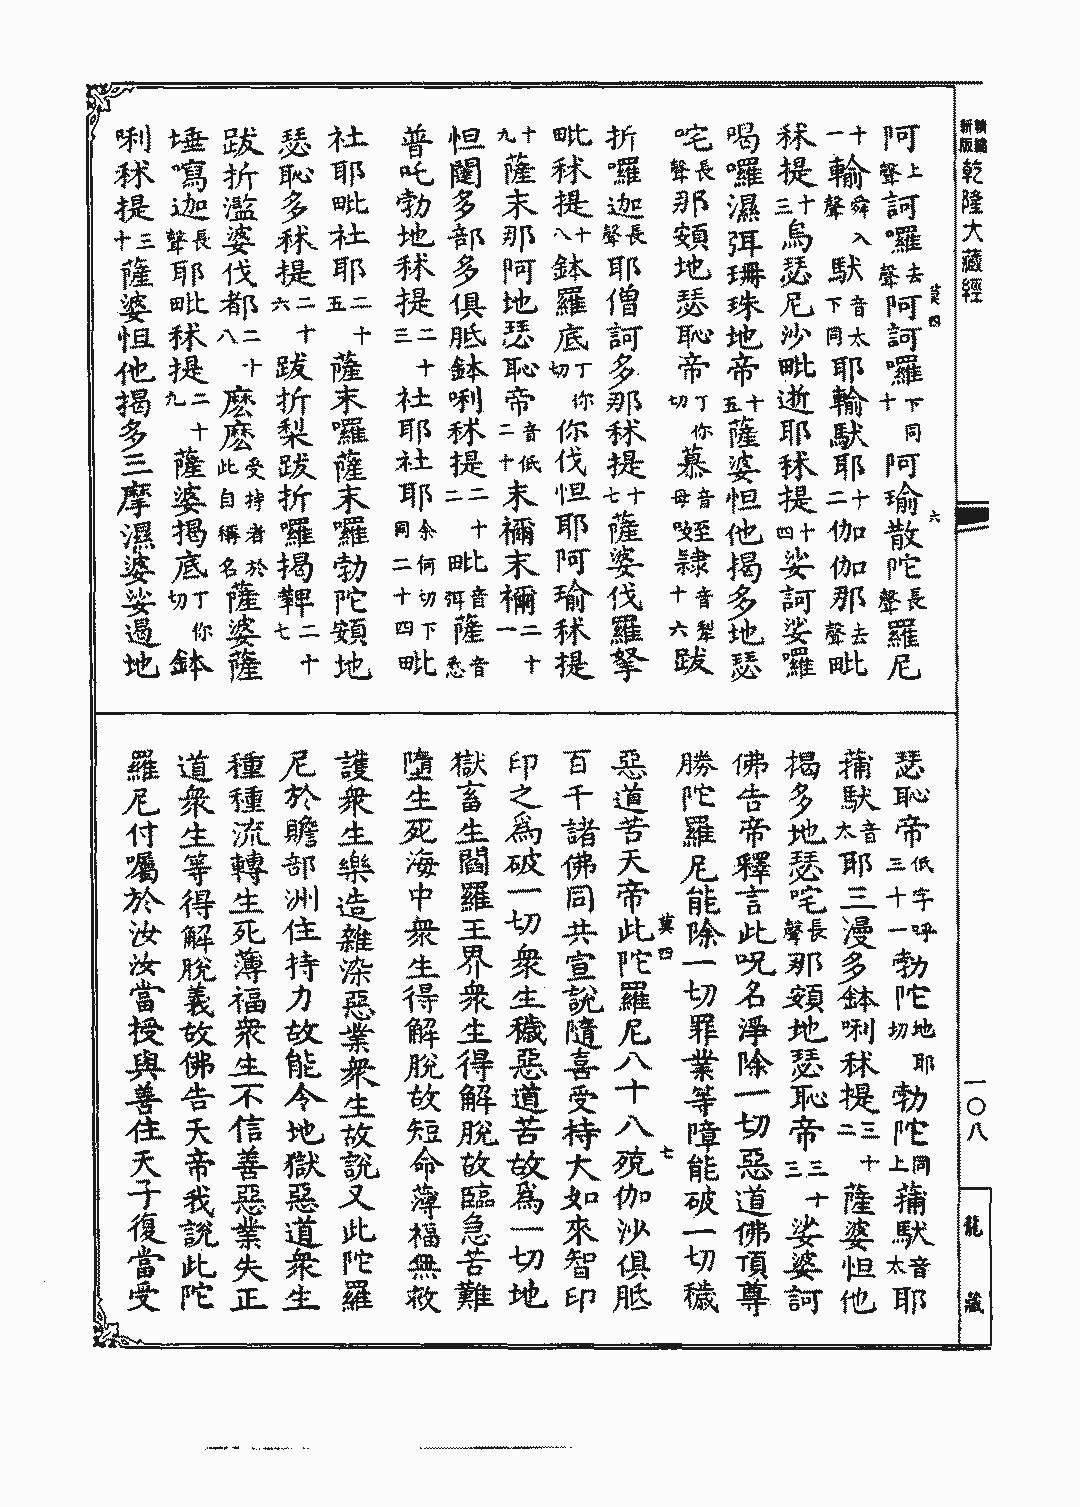 新版
乾隆大藏經
莫四
六
阿上聲訶囉去聲阿訶囉下同十阿瑜散陀長聲羅尼
十一輸舜入聲馱音太下同耶輸馱耶十二伽伽那去聲毗
秫提十三烏瑟尼沙毗逝耶秫提十四娑訶娑囉
喝囉濕弭珊珠地帝十五薩婆怛他揭多地瑟
咤長聲那頞地瑟恥帝丁你切慕音母隸音犁十六跋
折囉迦長聲耶僧訶多那秫提十七薩婆伐羅拏
毗秫提十八鉢羅底丁你切你伐怛耶阿瑜秫提
十九薩末那阿地瑟恥帝音低二十末禰末禰二十一
怛闥多部多俱胝鉢唎秫提二十二毗音弭薩音悉
普吒勃地秫提二十三社耶社耶余何切下同二十四毗
社耶毗社耶二十五薩末囉薩末囉勃陀頞地
瑟恥多秫提二十六跋折梨跋折囉揭鞞二十七
跋折濫婆伐都二十八麽麽受持者於此自稱名薩婆薩
埵寫迦長聲耶毗秫提二十九薩婆揭底丁你切鉢
唎秫提三十薩婆怛他揭多三摩濕婆娑遏地
瑟恥帝低字呼三十一勃陀地耶切勃陀同上蒱馱音太耶
蒱馱音太耶三漫多鉢唎秫提三十二薩婆怛他
揭多地瑟咤長聲那頞地瑟恥帝三十三娑婆訶
佛告帝釋言此呪名淨除一切惡道佛頂尊
勝陀羅尼能除一切罪業等障能破一切穢
莫四
七
惡道苦天帝此陀羅尼八十八殑伽沙俱胝
百千諸佛同共宣說隨喜受持大如來智印
印之爲破一切衆生穢惡道苦故爲一切地
獄畜生閻羅王界衆生得解脫故臨急苦難
墮生死海中衆生得解脫故短命薄福無救
護衆生樂造雜染惡業衆生故說又此陀羅
尼於贍部洲住持力故能令地獄惡道衆生
種種流轉生死薄福衆生不信善惡業失正
道衆生等得解脫義故佛告天帝我說此陀
羅尼付囑於汝汝當授與善住天子復當受
一〇八
龍藏